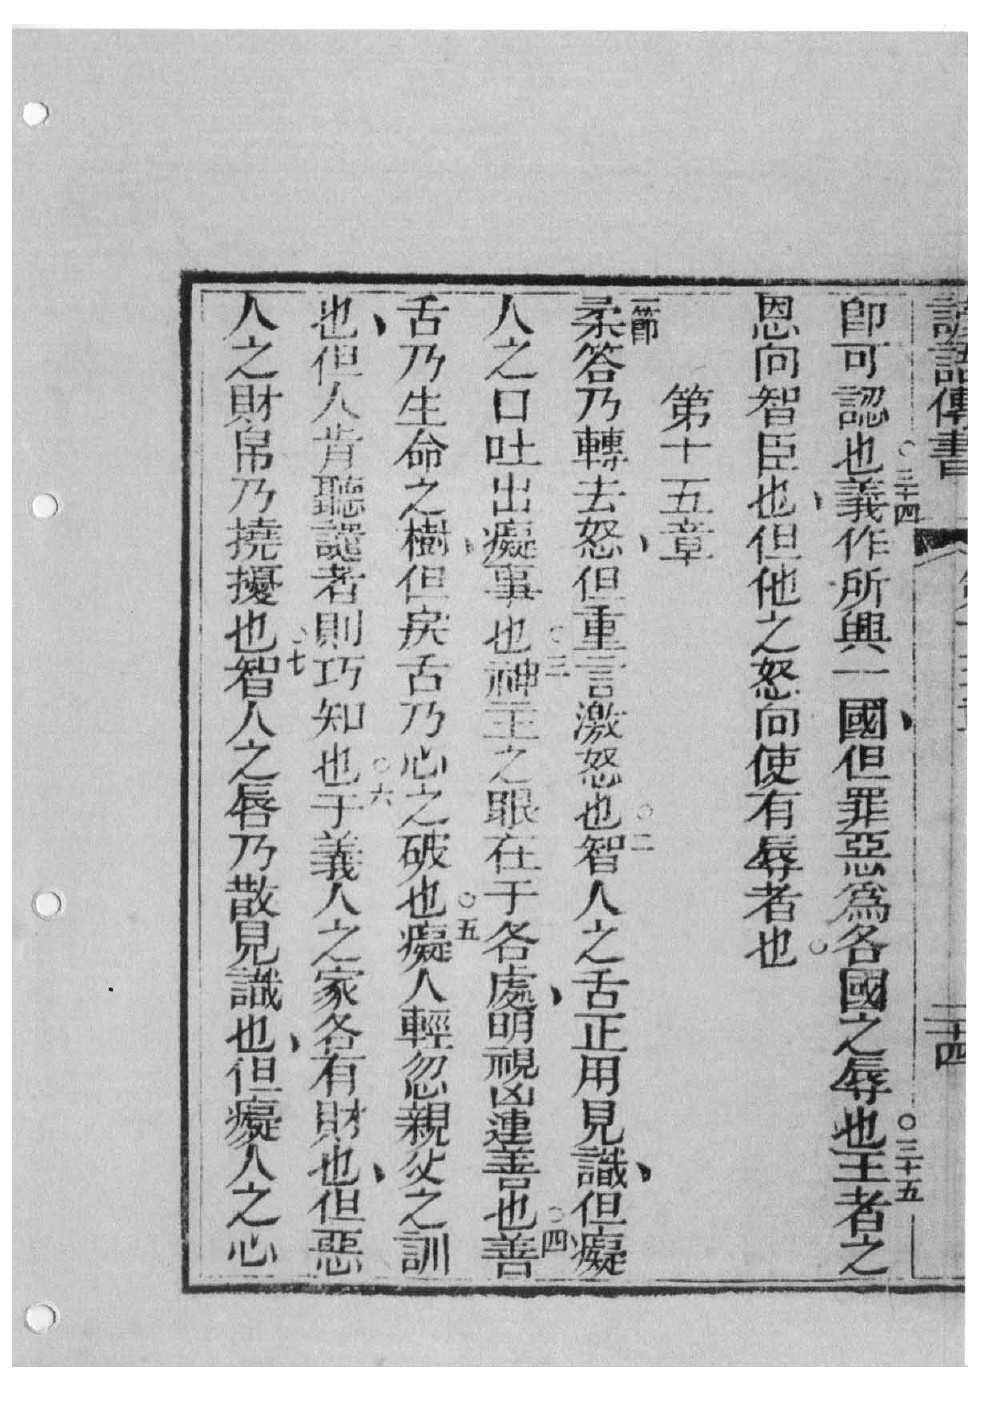 諺語傳書
二十四
即可認也○三十四義作所興一國但罪惡為各國之辱也○三十五王者之
恩向智臣也但他之怒向使有辱者也○
第十五章
一節柔答乃轉去怒但重言激怒也○二智人之舌正用見識但癡
人之口吐出癡事也○三神王之眼在于各處明視凶連善也○四善
舌乃生命之樹但戾舌乃心之破也○五癡人輕忽親父之訓
也但人肯聽譴者則巧知也○六于義人之家各有財也但惡
人之財帛乃撓擾也○七智人之唇乃散見識也但癡人之心